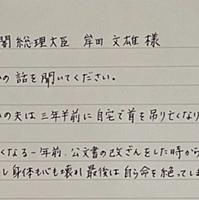 閣総理大臣 岸田文雄様
の話を聞いてください。
の夫は三年半前に自宅で首を吊り亡くなり
くなる一年前、公文書の改ざんをした時から
し身体も心も壊れ最後は自ら命を絶ってしま